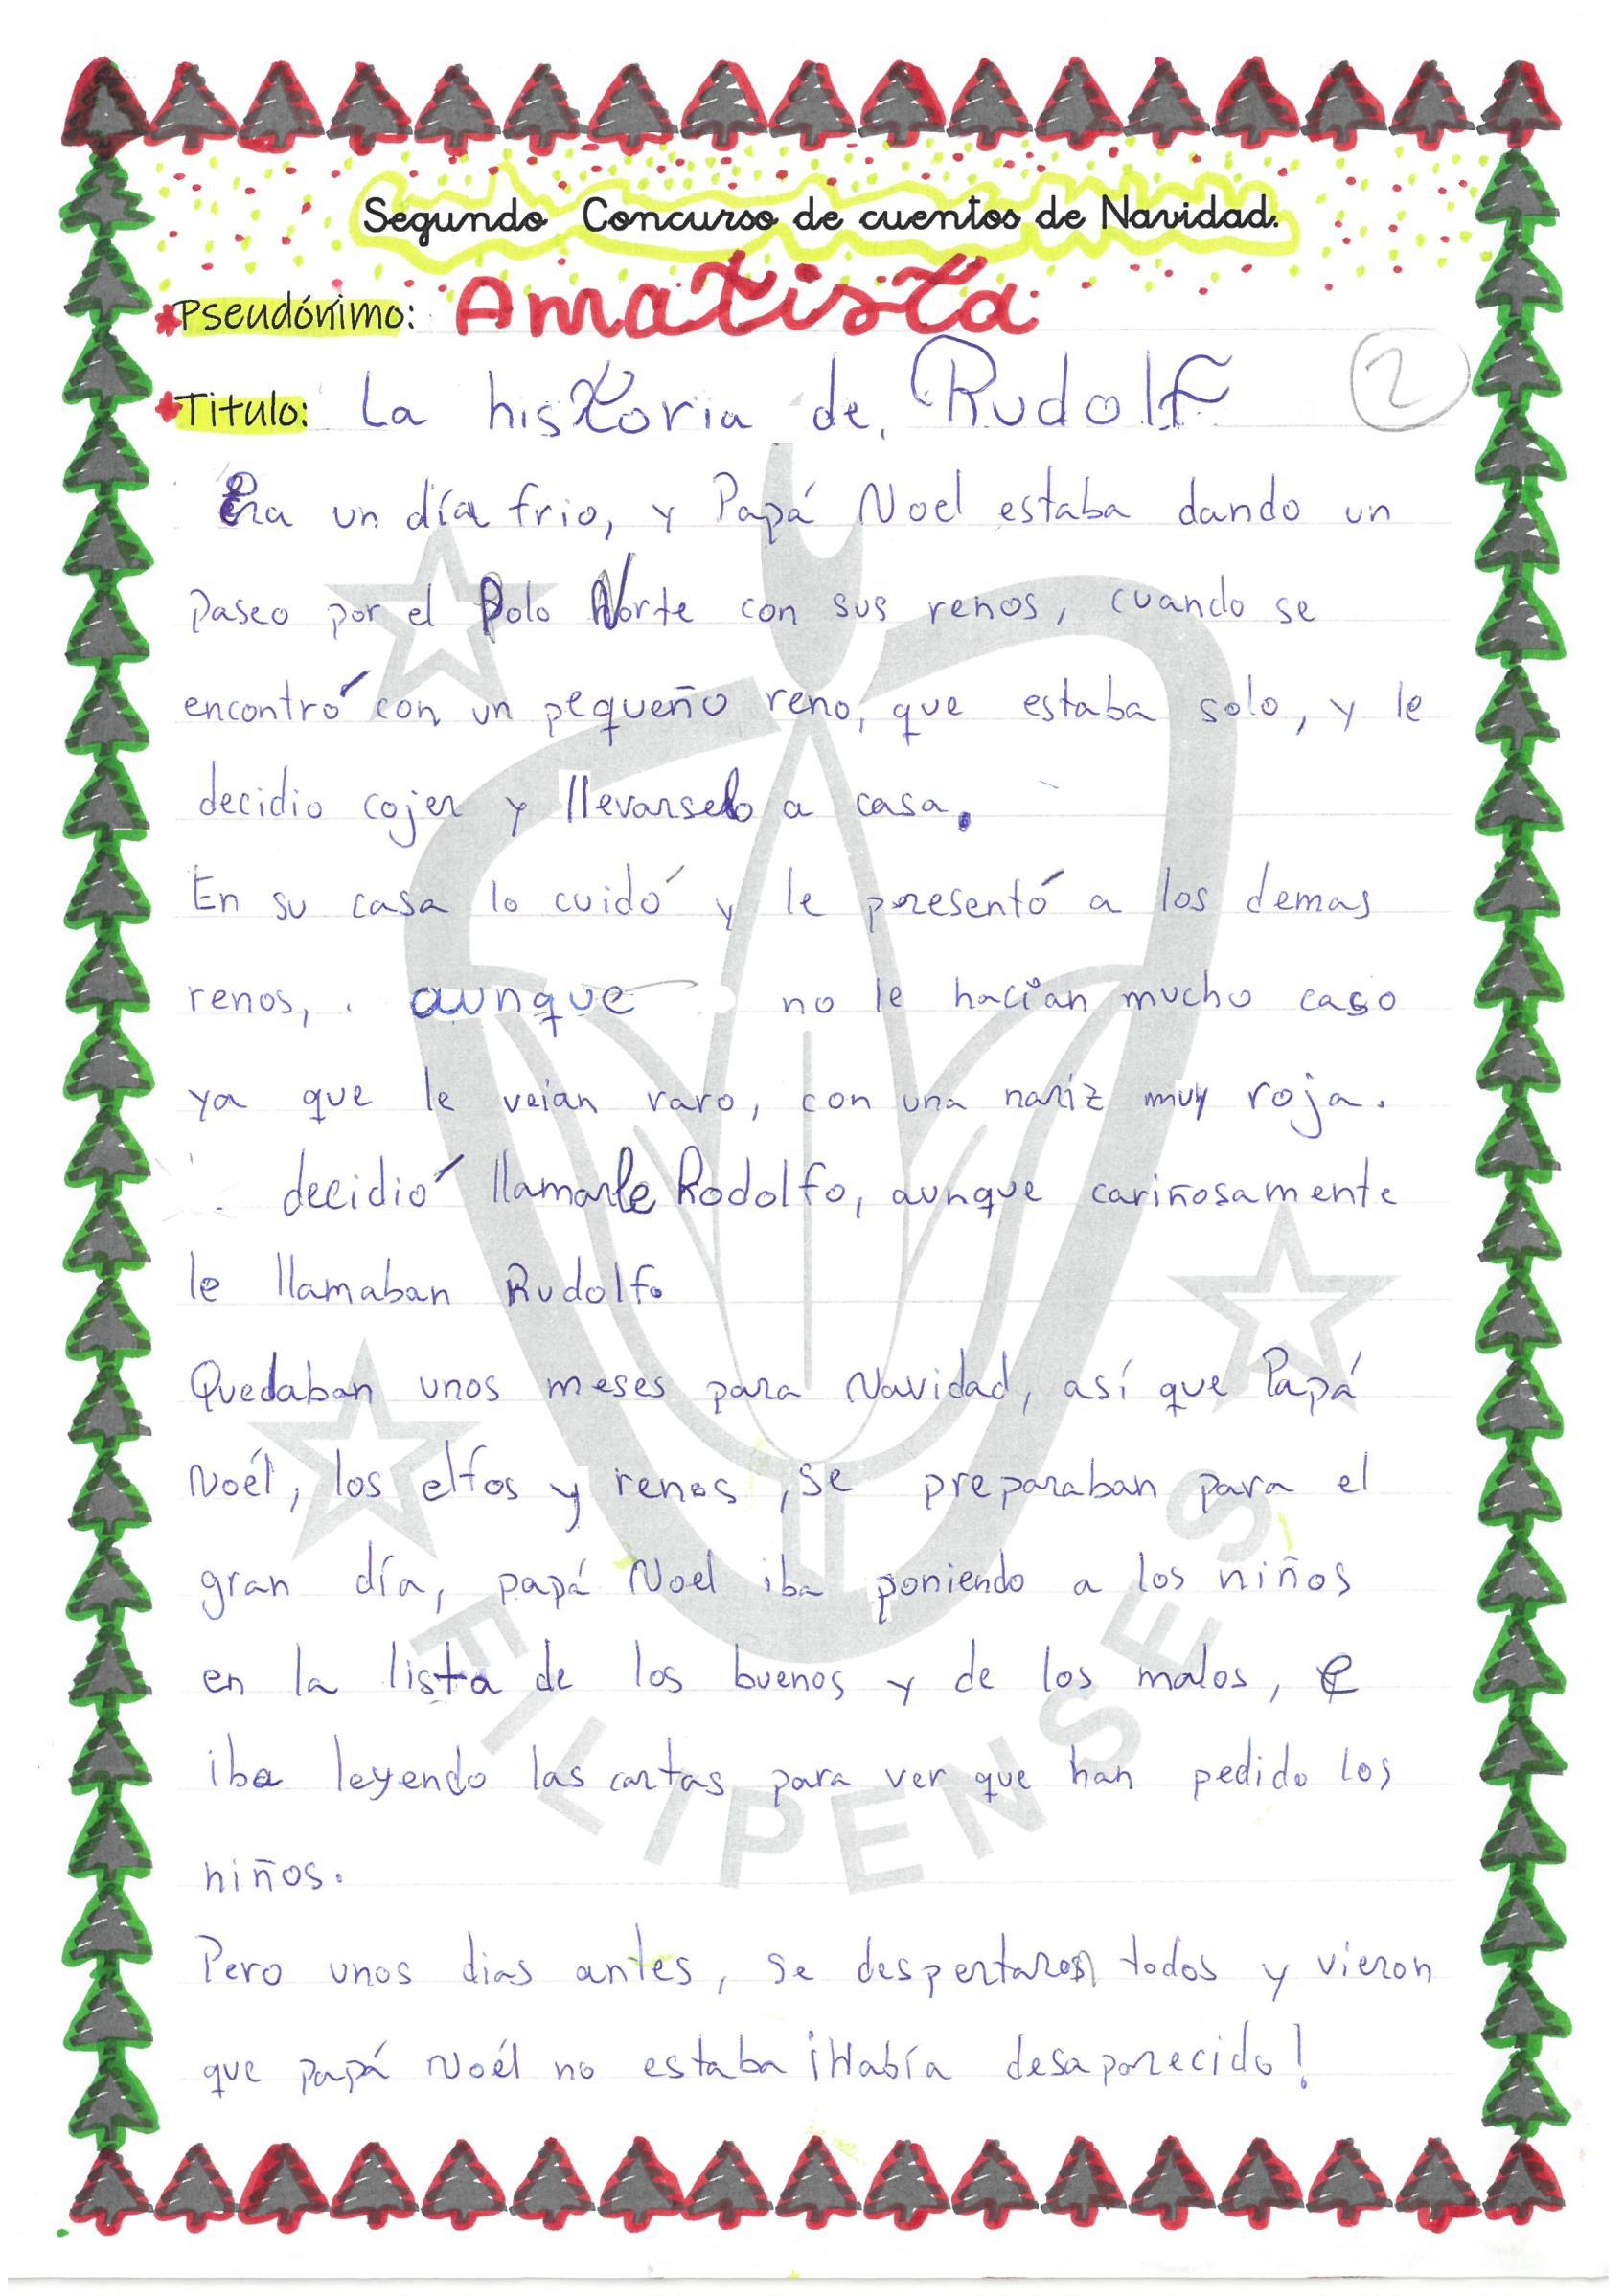 Segundo Concurso de cuentos de Navidad.
*Pseudónimo: Amatista
*Titulo: La historia de Rudolf
2
Era un día frio, y Papá Noel estaba dando un
paseo por el Polo Norte con sus renos, cuando se
encontró con un pequeño reno, que estaba solo, y le
decidio cojer y llevarselo a casa.
En su casa lo cuidó y le presentó a los demas
renos, aunque no le hacían mucho caso
ya que le veían raro, con una nariz muy roja.
decidió llamarle Rodolfo, aunque cariñosamente
le llamaban Rudolf.
Quedaban unos meses para Navidad, así que Papá
Noél, los elfos y renos, se preparaban para el
gran día, papá Noel iba poniendo a los niños
en la lista de los buenos y de los malos, e
iba leyendo las cartas para ver que han pedido los
niños.
Pero unos dias antes, se despertaron todos y vieron
que papá Noél no estaba ¡Había desaparecido!
FILIPENSES